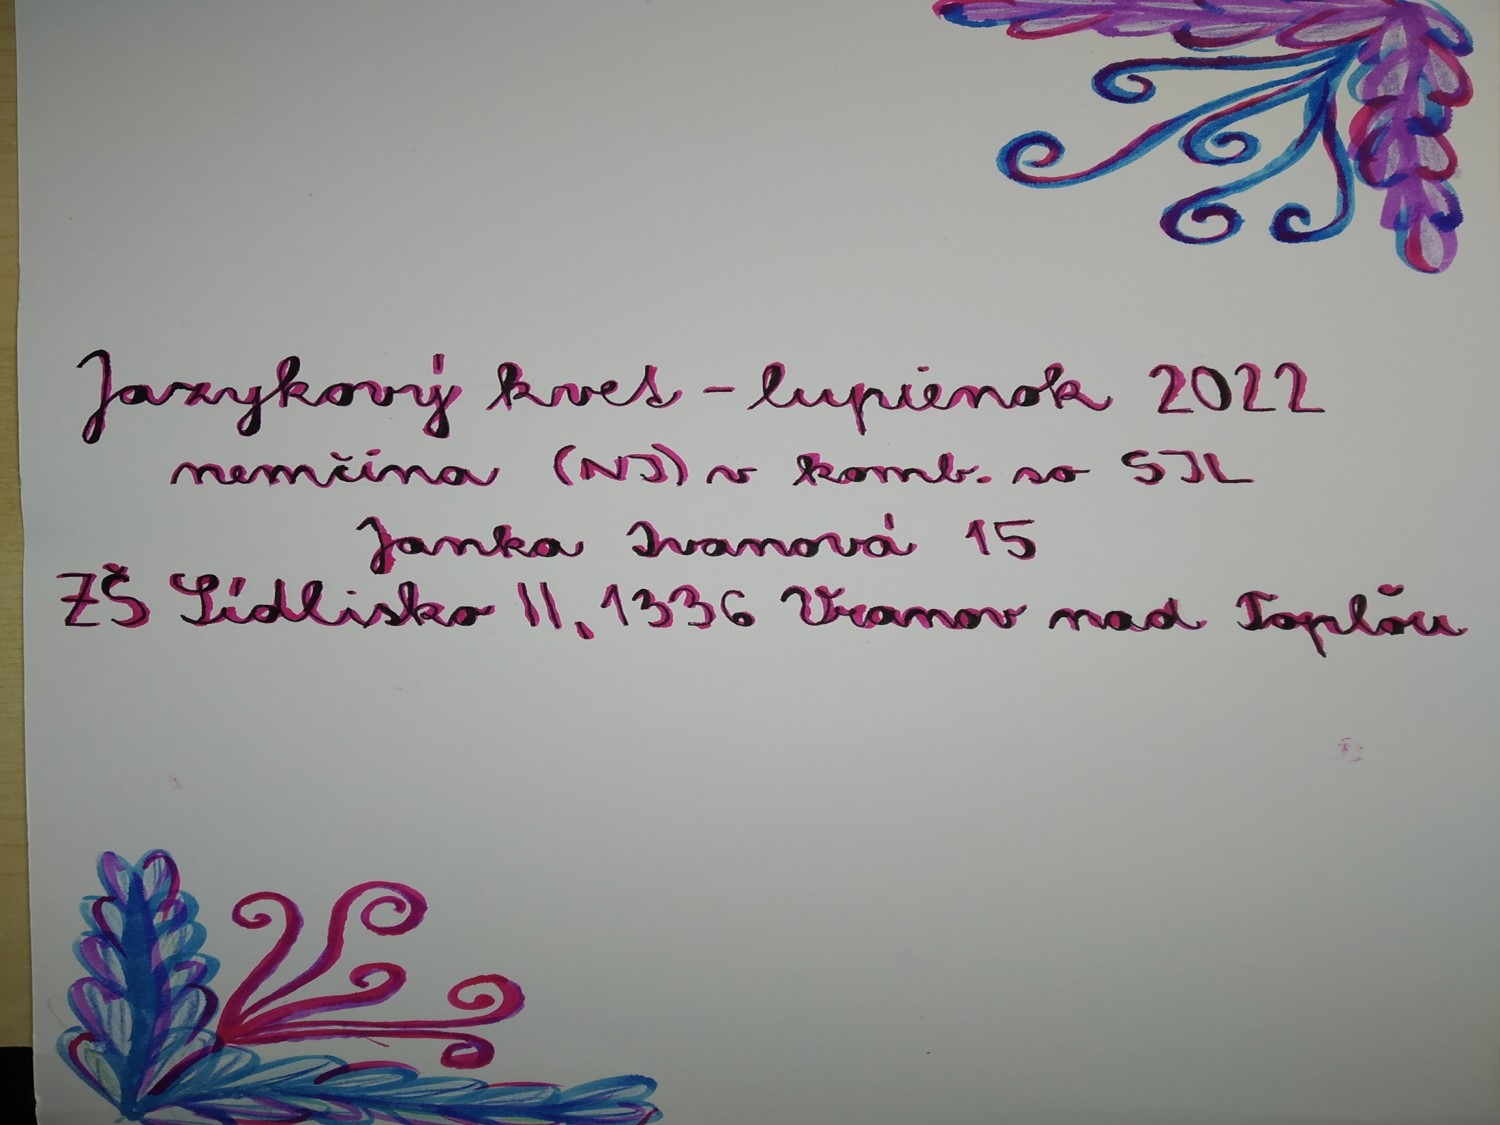 Jazykový kvet - lupienok 2022
nemčina (NJ) v komb. so SJL
Janka Ivanová 15
ZŠ Sídlisko II, 1336 Vranov nad Topľou